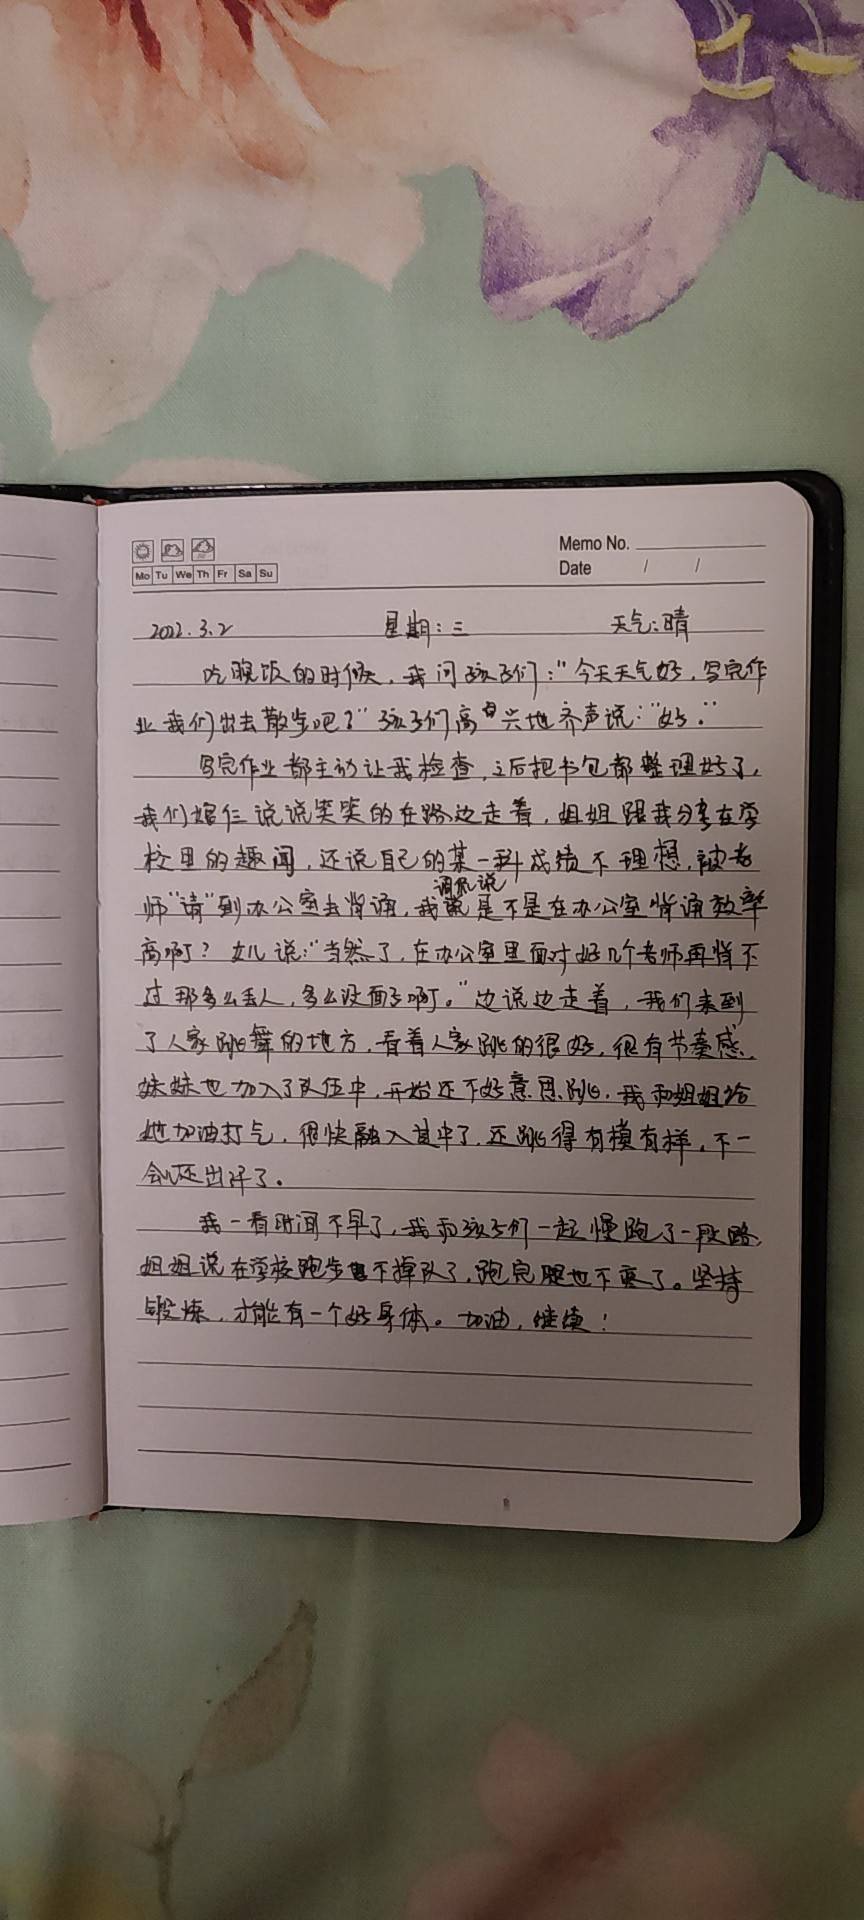 Memo No.
Mo Tu We Th Fr Sa Su
Date / /
2022.3.2 星期:三 天气:晴
吃晚饭的时候,我问孩子们:"今天天气好,写完作
业我们出去散步吧?"孩子们高兴地齐声说:"好."
写完作业都主动让我检查,之后把书包都整理好了,
我们娘仨说说笑笑的在路边走着,姐姐跟我分享在学
校里的趣闻,还说自己的某一科成绩不理想,被老
师"请"到办公室去背诵,我调侃说是不是在办公室背诵效率
高啊?女儿说:"当然了,在办公室里面对好几个老师再背不
过那多么丢人,多么没面子啊。"边说边走着,我们来到
了人家跳舞的地方,看着人家跳的很好,很有节奏感,
妹妹也加入了队伍中,开始还不好意思跳,我和姐姐给
她加油打气,很快融入其中了,还跳得有模有样,不一
会儿还出汗了。
我一看时间不早了,我和孩子们一起慢跑了一段路,
姐姐说在学校跑步不掉队了,跑完腿也不疼了。坚持
锻炼,才能有一个好身体。加油,继续!